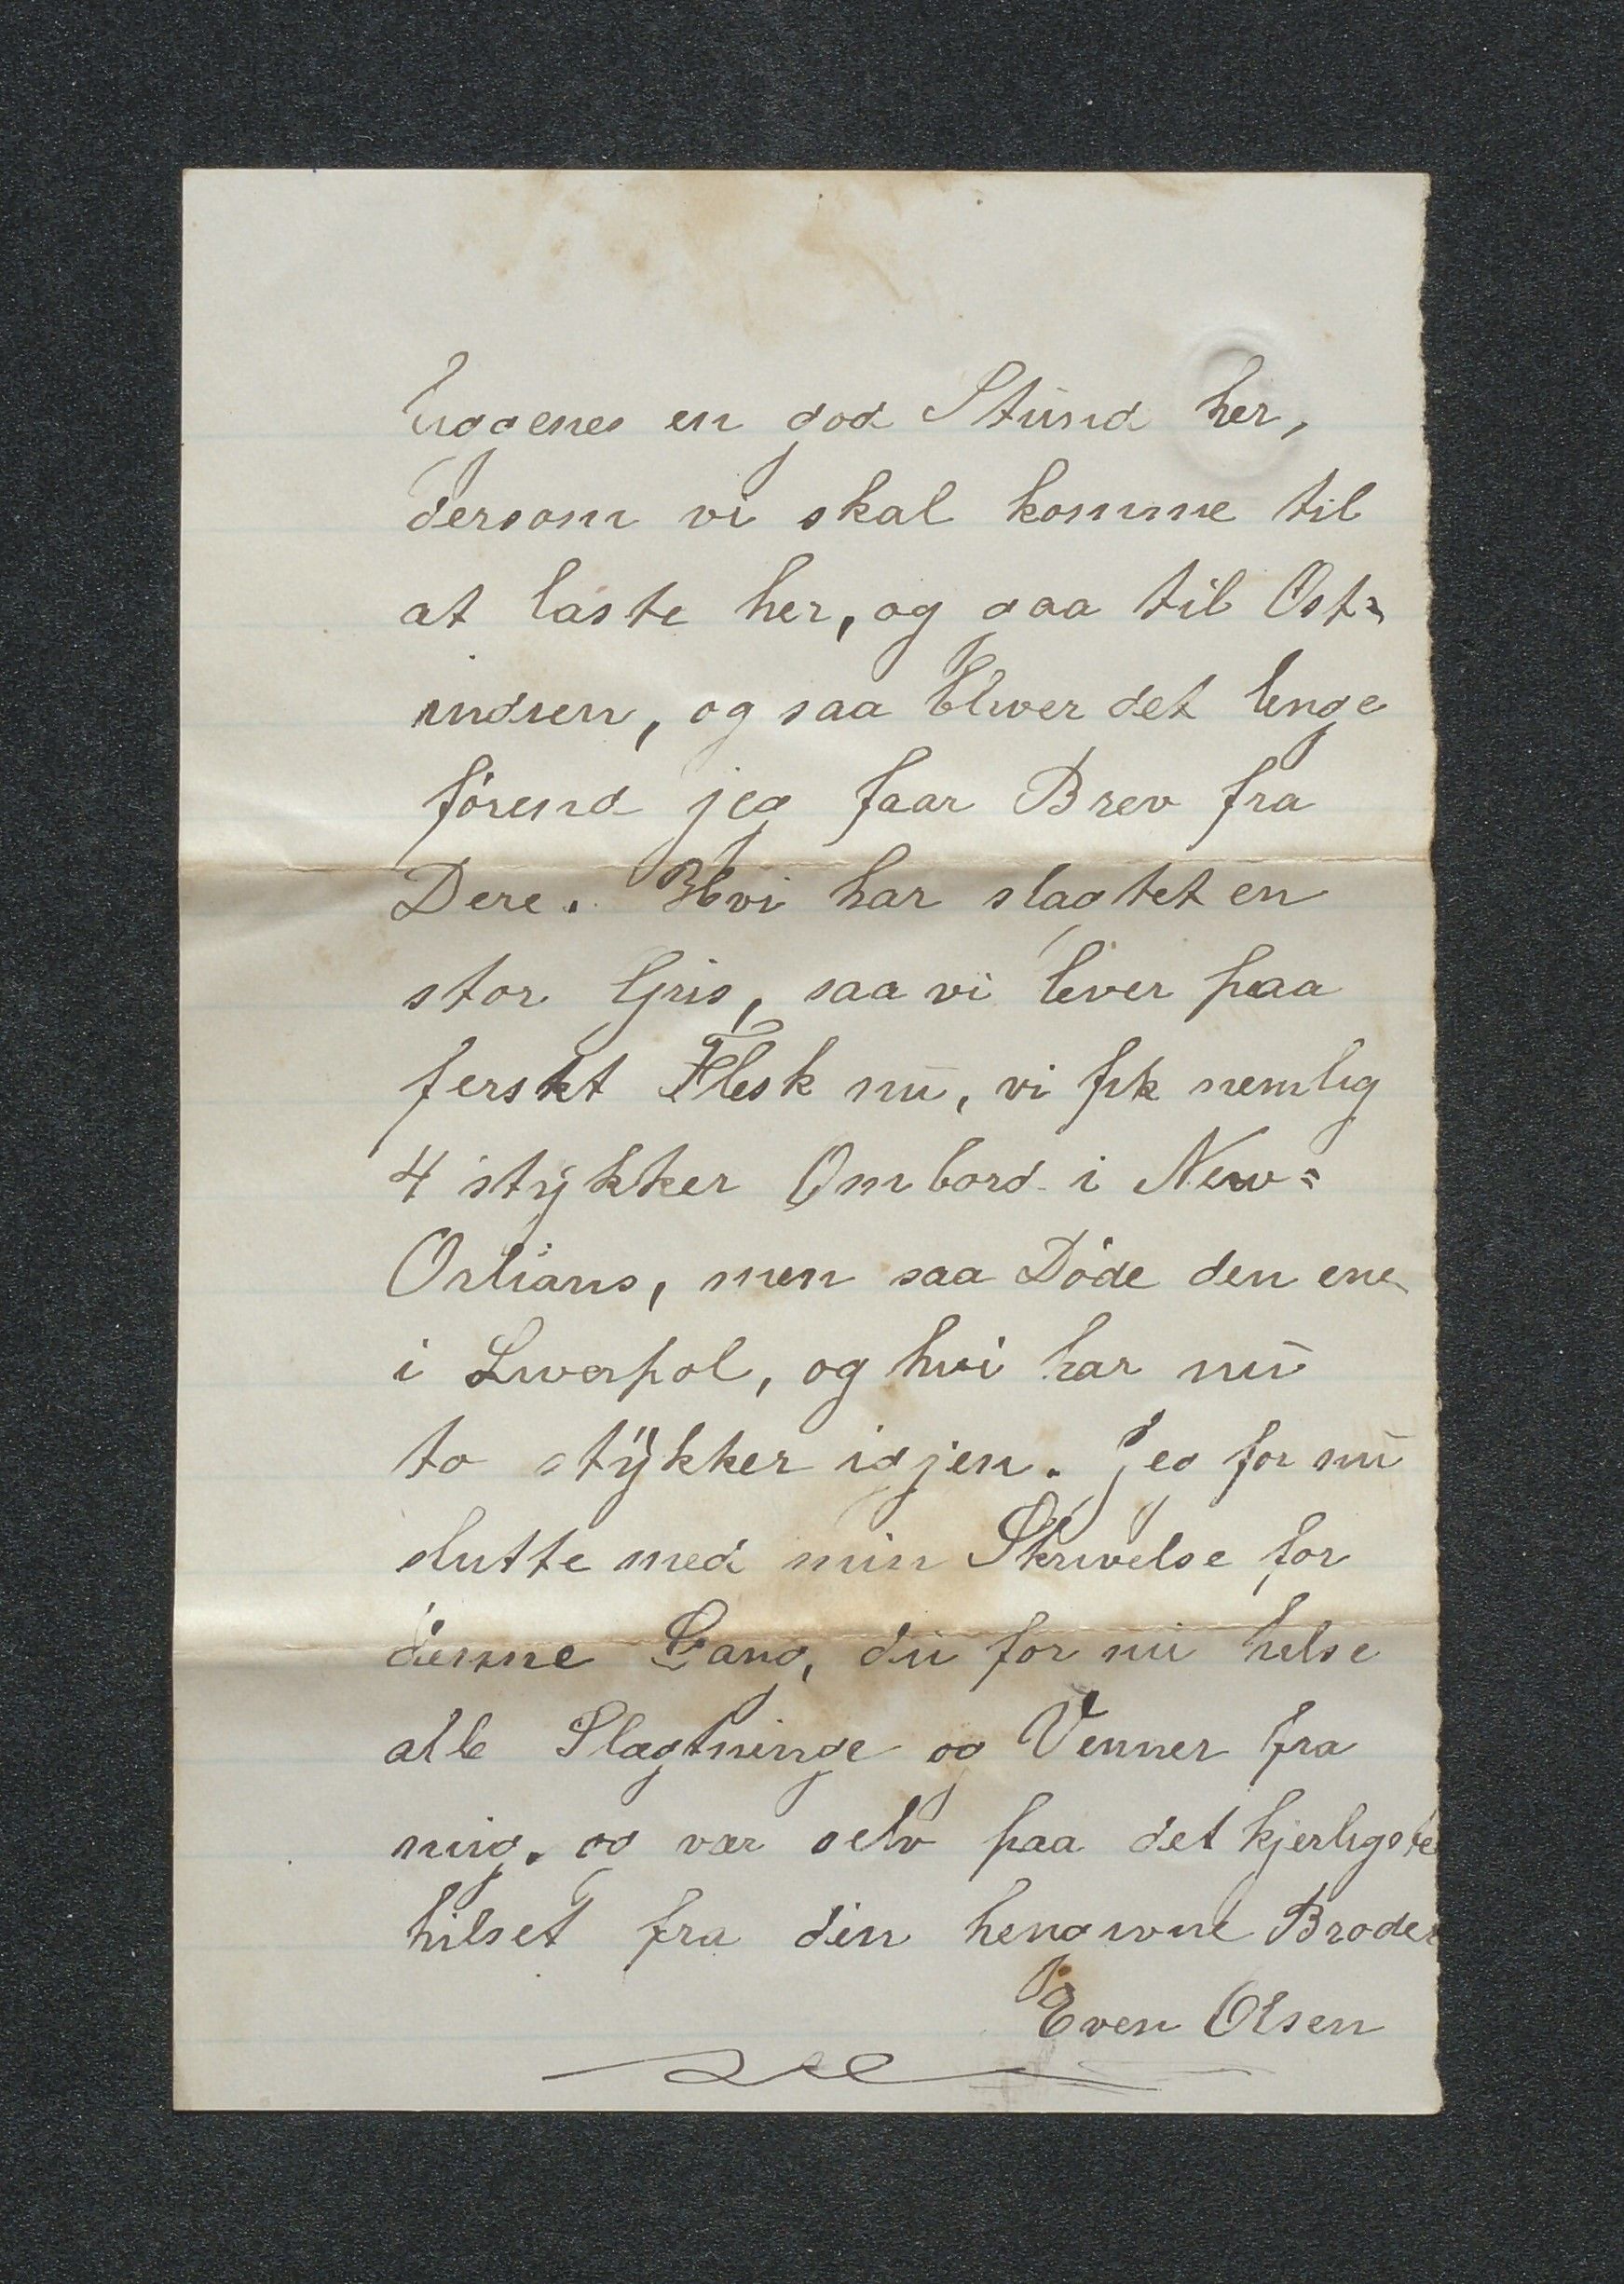 liggenes en god Stund her,
dersom vi skal komme til
at laste her, og gaa til Ost=
indien, og saa bliver det lenge
førend jeg faar Brev fra
Dere. Hvi har slagtet en
stor Gris, saa vi lever paa
ferskt Flesk nu, vi fik nemlig
4 stykker Ombord i New=
Orlians, men saa Døde den ene
i Liverpol, og hvi har nu
to stykker igjen. Jeg for nu
slutte med min Skrivelse for
denne Gang, du for nu helse
alle Slægtninge og Venner fra
mig. og vær selv paa det kjerligste
hilset fra din hengivne Broder
Even Olsen